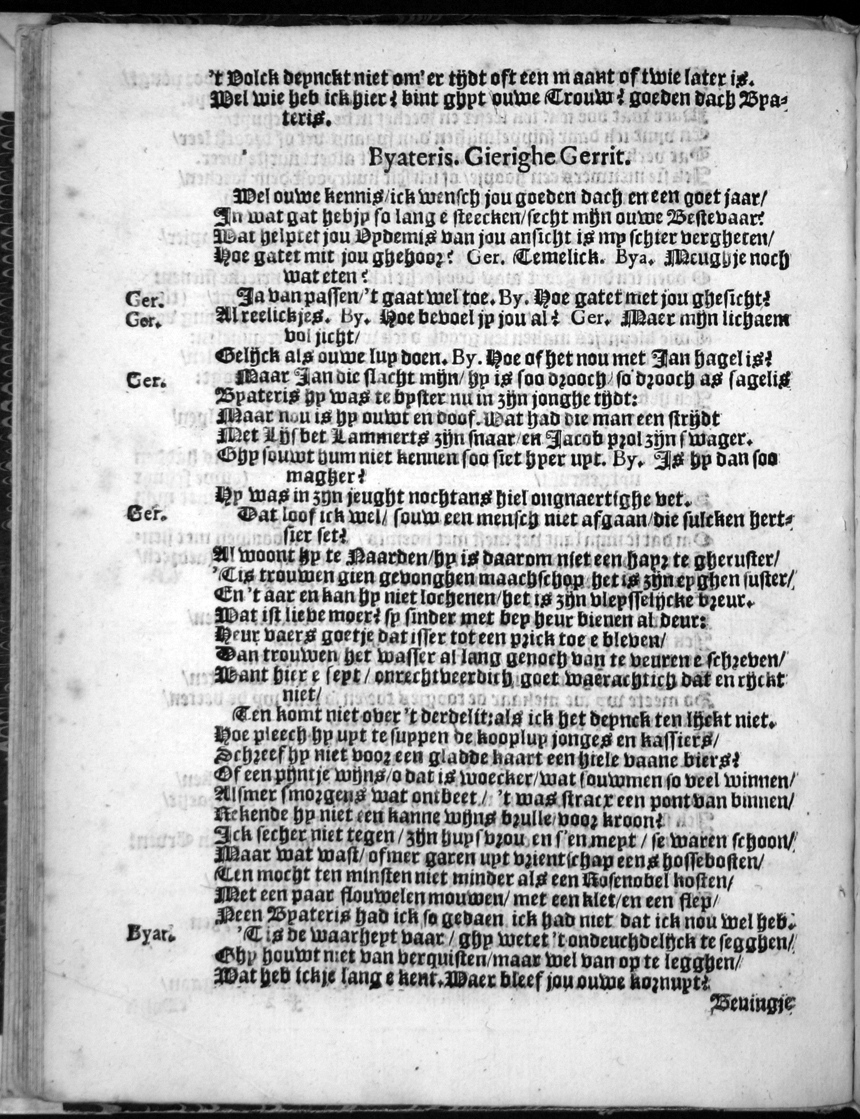 't Volck depnckt niet om' er tijdt oft een maant of twie later is.
Wel wie heb ick hier? bint ghyt ouwe Trouw? goeden dach Bya-
teris.
Byateris. Gierighe Gerrit.
Wel ouwe kennis/ick wensch jou goeden dach en een goet jaar/
In wat gat hebjy so lang e steecken/secht mijn ouwe Bestevaar?
Wat helptet jou Opdemis van jou ansicht is my schier vergheten/
Hoe gatet mit jou ghehoor? Ger. Temelick. Bya. Meughje noch
wat eten?
Ger. Ja van passen/'t gaat wel toe. By. Hoe gatet met jou ghesicht?
Ger. Al reelickjes. By. Hoe bevoel jy jou al? Ger. Maer mijn lichaem
vol jicht/
Gelijck als ouwe luy doen. By. Hoe of het nou met Jan hagel is?
Ger. Maar Jan die slacht mijn/hy is soo drooch/so drooch as sagelis
Byateris hy was te byster nu in zijn jonghe tijdt:
Maar nou is hy ouwt en doof. Wat had die man een strijdt
Met Lijsbet Lammerts zijn snaar/en Jacob prol zijn swager.
Ghy souwt hum niet kennen soo siet hyer uyt. By. Is hy dan soo
magher?
Hy was in zijn jeught nochtans hiel ongnaertighe vet.
Ger. Dat loof ick wel/ souw een mensch niet afgaan/die sulcken hert-
sier set?
Al woont hy te Naarden/hy is daarom niet een hayr te gheruster/
'Tis trouwen gien gevonghen maachschop het is zijn eyghen suster/
En 't aar en kan hy niet lochenen/het is zijn vleysselijcke vreur.
Wat ist lieve moer? sy sinder met bey heur bienen al deur:
Heur vaers goetje dat isser tot een prick toe e bleven/
Dan trouwen het wasser al lang genoch van te veuren e schreven/
Want hier e seyt/ onrechtveerdich goet waerachtich dat en rijckt
niet/
Ten komt niet over 't derdelit: als ick het depnck ten lijckt niet.
Hoe pleech hy uyt te suypen de koopluy jonges en kassiers/
Schreef hy niet voor een gladde kaart een hiele vaane biers?
Of een pijntje wijns/o dat is woecker/wat souwmen so veel winnen/
Alsmer smorgens wat ontbeet/ 't was stracx een pont van binnen/
Rekende hy niet een kanne wijns vrulle voor kroon?
Ick secher niet tegen/zijn huysvrou en s'en meyt/se waren schoon/
Maar wat wast/ofmer garen uyt vrientschap eens hossebosten/
Ten mocht ten minsten niet minder als een Rosenobel kosten/
Met een paar flouwelen mouwen/ met een klet/en een slep/
Neen Byateris had ick so gedaen ick had niet dat ick nou wel heb.
Byar. 'Tis de waarheyt vaar/ghy wetet 't ondeuchdelijck te segghen/
Ghy houwt niet van verquisten/maar wel van op te legghen/
Wat heb ickje lang e kent. Waer bleef jou ouwe kornuyt?
Beuingje